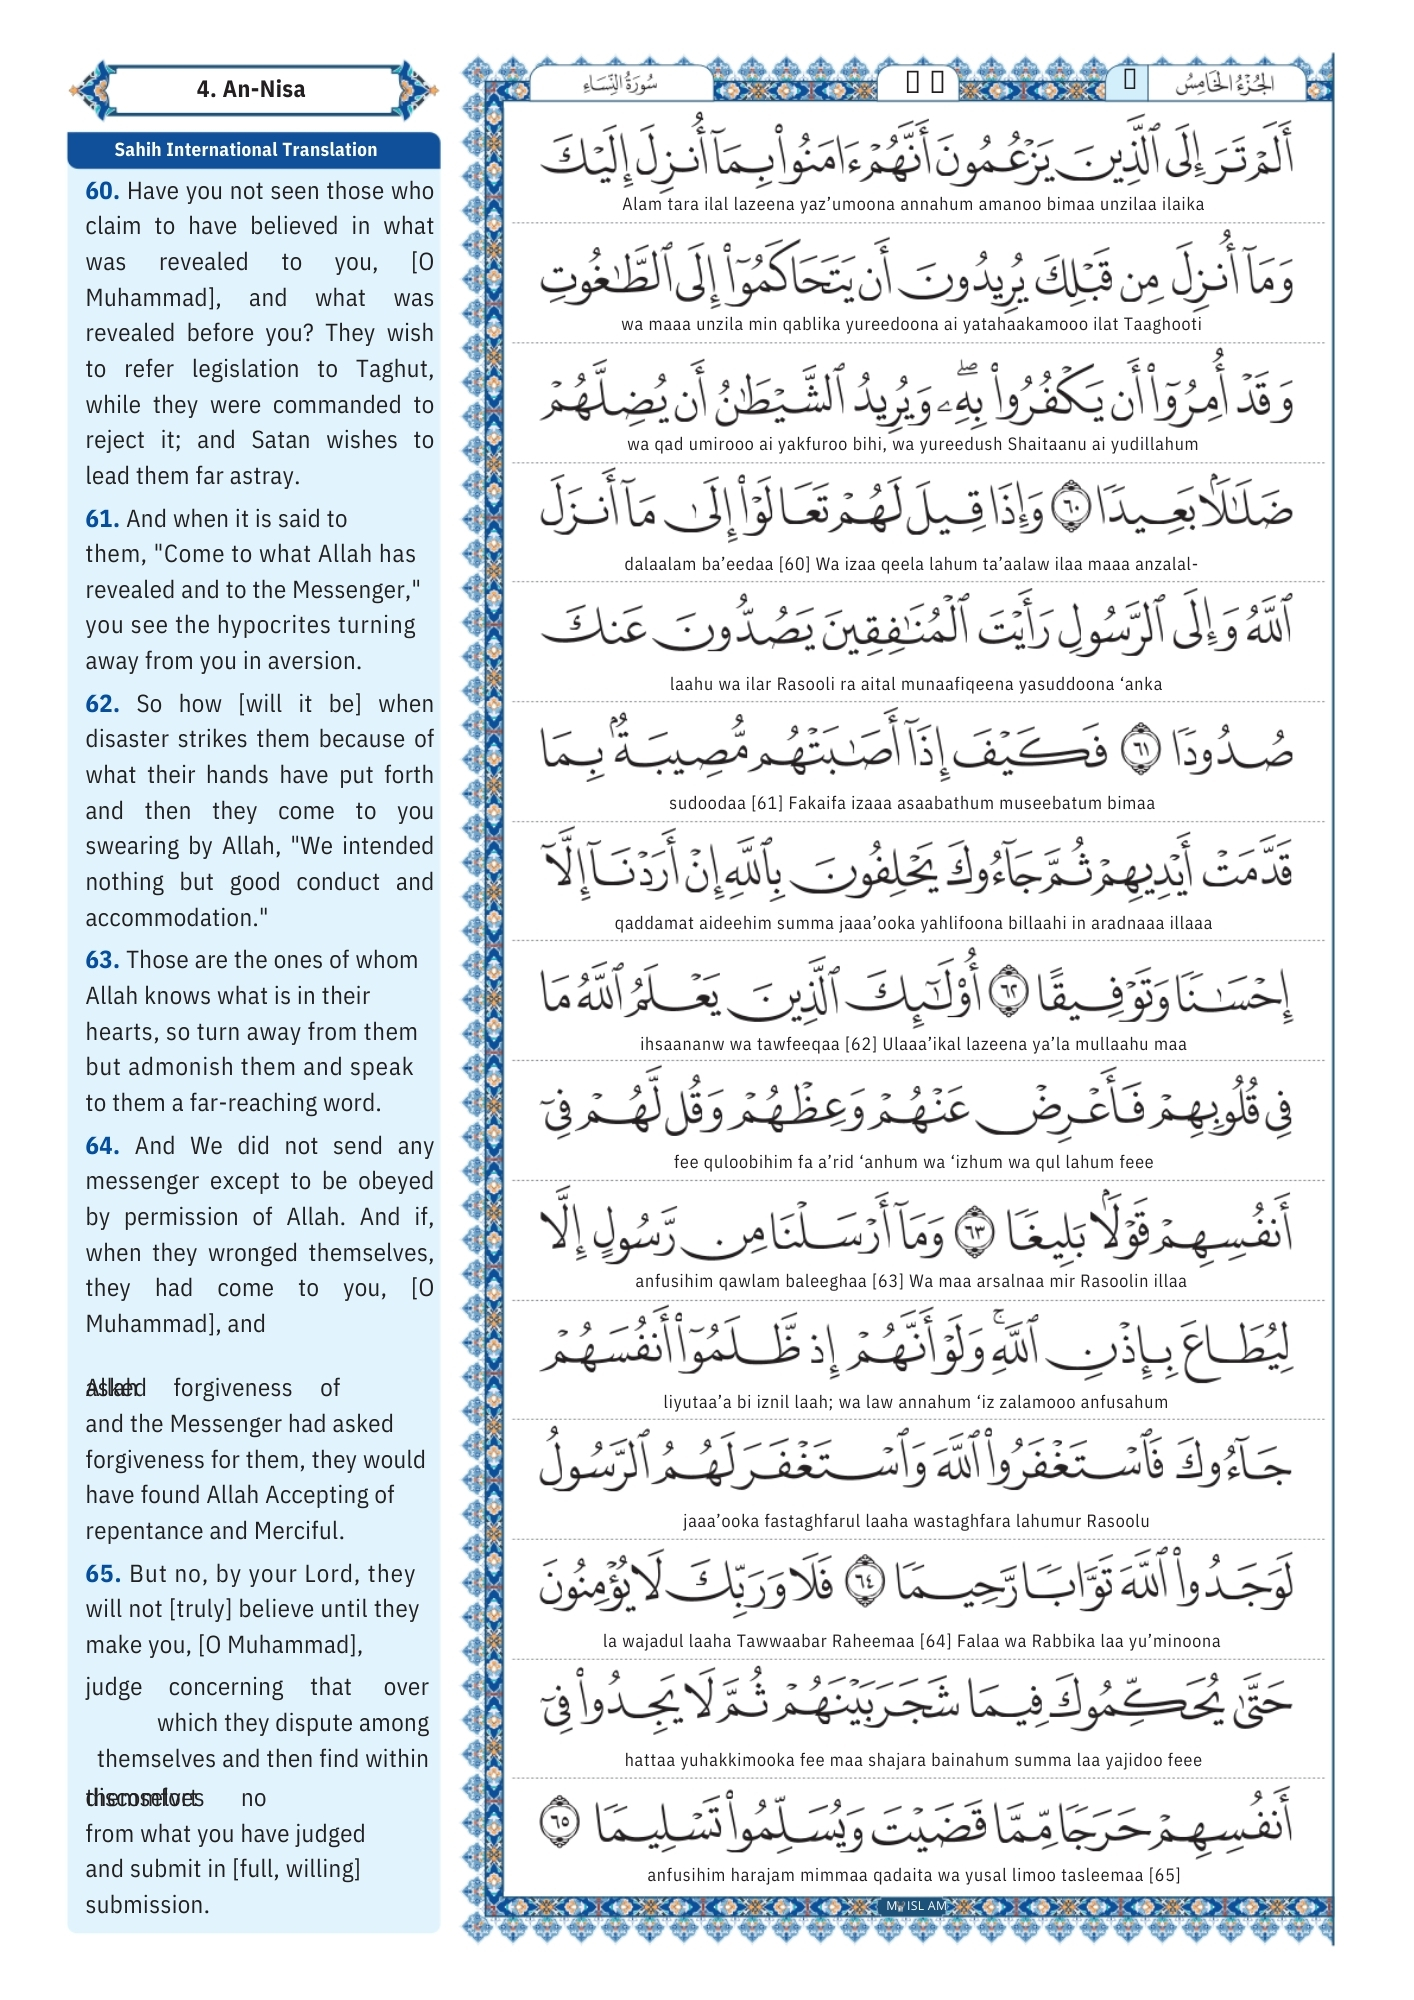 4. An-Nisa
Sahih International Translation
60. Have you not seen those who
claim to have believed in what
was revealed to you, [O
Muhammad], and what was
revealed before you? They wish
to refer legislation to Taghut,
while they were commanded to
reject it; and Satan wishes to
lead them far astray.
61. And when it is said to
them, "Come to what Allah has
revealed and to the Messenger,"
you see the hypocrites turning
away from you in aversion.
62. So how [will it be] when
disaster strikes them because of
what their hands have put forth
and then they come to you
swearing by Allah, "We intended
nothing but good conduct and
accommodation."
63. Those are the ones of whom
Allah knows what is in their
hearts, so turn away from them
but admonish them and speak
to them a far-reaching word.
64. And We did not send any
messenger except to be obeyed
by permission of Allah. And if,
when they wronged themselves,
they had come to you, [O
Muhammad], and
asked forgiveness of
Allah
and the Messenger had asked
forgiveness for them, they would
have found Allah Accepting of
repentance and Merciful.
65. But no, by your Lord, they
will not [truly] believe until they
make you, [O Muhammad],
judge concerning that over
which they dispute among
themselves and then find within
themselves no
discomfort
from what you have judged
and submit in [full, willing]
submission.
سُورَةُ النِّسَاءِ
الجُزْءُ الخَامِسُ
أَلَمْ تَرَ إِلَى ٱلَّذِينَ يَزْعُمُونَ أَنَّهُمْ ءَامَنُوا۟ بِمَآ أُنزِلَ إِلَيْكَ
Alam tara ilal lazeena yaz’umoona annahum amanoo bimaa unzilaa ilaika
وَمَآ أُنزِلَ مِن قَبْلِكَ يُرِيدُونَ أَن يَتَحَاكَمُوٓا۟ إِلَى ٱلطَّٰغُوتِ
wa maaa unzila min qablika yureedoona ai yatahaakamooo ilat Taaghooti
وَقَدْ أُمِرُوٓا۟ أَن يَكْفُرُوا۟ بِهِۦۖ وَيُرِيدُ ٱلشَّيْطَٰنُ أَن يُضِلَّهُمْ
wa qad umirooo ai yakfuroo bihi, wa yureedush Shaitaanu ai yudillahum
ضَلَٰلًۢا بَعِيدًا ٦٠ وَإِذَا قِيلَ لَهُمْ تَعَالَوْا۟ إِلَىٰ مَآ أَنزَلَ
dalaalam ba’eedaa [60] Wa izaa qeela lahum ta’aalaw ilaa maaa anzalal-
ٱللَّهُ وَإِلَى ٱلرَّسُولِ رَأَيْتَ ٱلْمُنَٰفِقِينَ يَصُدُّونَ عَنكَ
laahu wa ilar Rasooli ra aital munaafiqeena yasuddoona ‘anka
صُدُودًا ٦١ فَكَيْفَ إِذَآ أَصَٰبَتْهُم مُّصِيبَةٌۢ بِمَا
sudoodaa [61] Fakaifa izaaa asaabathum museebatum bimaa
قَدَّمَتْ أَيْدِيهِمْ ثُمَّ جَآءُوكَ يَحْلِفُونَ بِٱللَّهِ إِنْ أَرَدْنَآ إِلَّآ
qaddamat aideehim summa jaaa’ooka yahlifoona billaahi in aradnaaa illaaa
إِحْسَٰنًا وَتَوْفِيقًا ٦٢ أُو۟لَٰٓئِكَ ٱلَّذِينَ يَعْلَمُ ٱللَّهُ مَا
ihsaananw wa tawfeeqaa [62] Ulaaa’ikal lazeena ya’la mullaahu maa
فِى قُلُوبِهِمْ فَأَعْرِضْ عَنْهُمْ وَعِظْهُمْ وَقُل لَّهُمْ فِىٓ
fee quloobihim fa a’rid ‘anhum wa ‘izhum wa qul lahum feee
أَنفُسِهِمْ قَوْلًۢا بَلِيغًا ٦٣ وَمَآ أَرْسَلْنَا مِن رَّسُولٍ إِلَّا
anfusihim qawlam baleeghaa [63] Wa maa arsalnaa mir Rasoolin illaa
لِيُطَاعَ بِإِذْنِ ٱللَّهِۚ وَلَوْ أَنَّهُمْ إِذ ظَّلَمُوٓا۟ أَنفُسَهُمْ
liyutaa’a bi iznil laah; wa law annahum ‘iz zalamooo anfusahum
جَآءُوكَ فَٱسْتَغْفَرُوا۟ ٱللَّهَ وَٱسْتَغْفَرَ لَهُمُ ٱلرَّسُولُ
jaaa’ooka fastaghfarul laaha wastaghfara lahumur Rasoolu
لَوَجَدُوا۟ ٱللَّهَ تَوَّابًا رَّحِيمًا ٦٤ فَلَا وَرَبِّكَ لَا يُؤْمِنُونَ
la wajadul laaha Tawwaabar Raheemaa [64] Falaa wa Rabbika laa yu’minoona
حَتَّىٰ يُحَكِّمُوكَ فِيمَا شَجَرَ بَيْنَهُمْ ثُمَّ لَا يَجِدُوا۟ فِىٓ
hattaa yuhakkimooka fee maa shajara bainahum summa laa yajidoo feee
أَنفُسِهِمْ حَرَجًا مِّمَّا قَضَيْتَ وَيُسَلِّمُوا۟ تَسْلِيمًا ٦٥
anfusihim harajam mimmaa qadaita wa yusal limoo tasleemaa [65]
MyISLAM